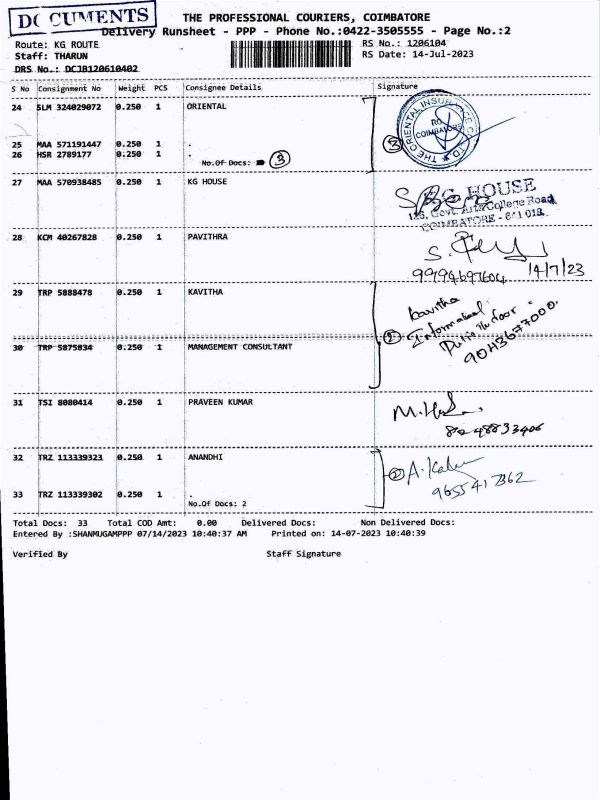 DOCUMENTS
THE PROFESSIONAL COURIERS, COIMBATORE
Delivery Runsheet - PPP - Phone No.:0422-3505555 - Page No.:2
Route: KG ROUTE
RS No.: 1206104
Staff: THARUN
RS Date: 14-Jul-2023
DRS No.: DCJB120610402
S No Consignment No Weight PCS Consignee Details Signature
24 SLM 324029072 0.250 1 ORIENTAL
THE ORIENTAL INSURANCE CO. LTD
COIMBATORE
25 MAA 571191447 0.250 1 .
26 HSR 2789177 0.250 1 .
No.Of Docs: 3
3
27 MAA 570938485 0.250 1 KG HOUSE
KG HOUSE
Govt. Arts College Road
COIMBATORE - 641 018.
28 KCM 40267828 0.250 1 PAVITHRA
9994697604 14/7/23
29 TRP 5888478 0.250 1 KAVITHA
Kavitha
30 TRP 5875834 0.250 1 MANAGEMENT CONSULTANT
2
9043677000.
31 TSI 8080414 0.250 1 PRAVEEN KUMAR
32 TRZ 113339323 0.250 1 ANANDHI
2
33 TRZ 113339302 0.250 1 .
No.Of Docs: 2
Total Docs: 33 Total COD Amt: 0.00 Delivered Docs: Non Delivered Docs:
Entered By :SHANMUGAMPPP 07/14/2023 10:40:37 AM Printed on: 14-07-2023 10:40:39
Verified By Staff Signature